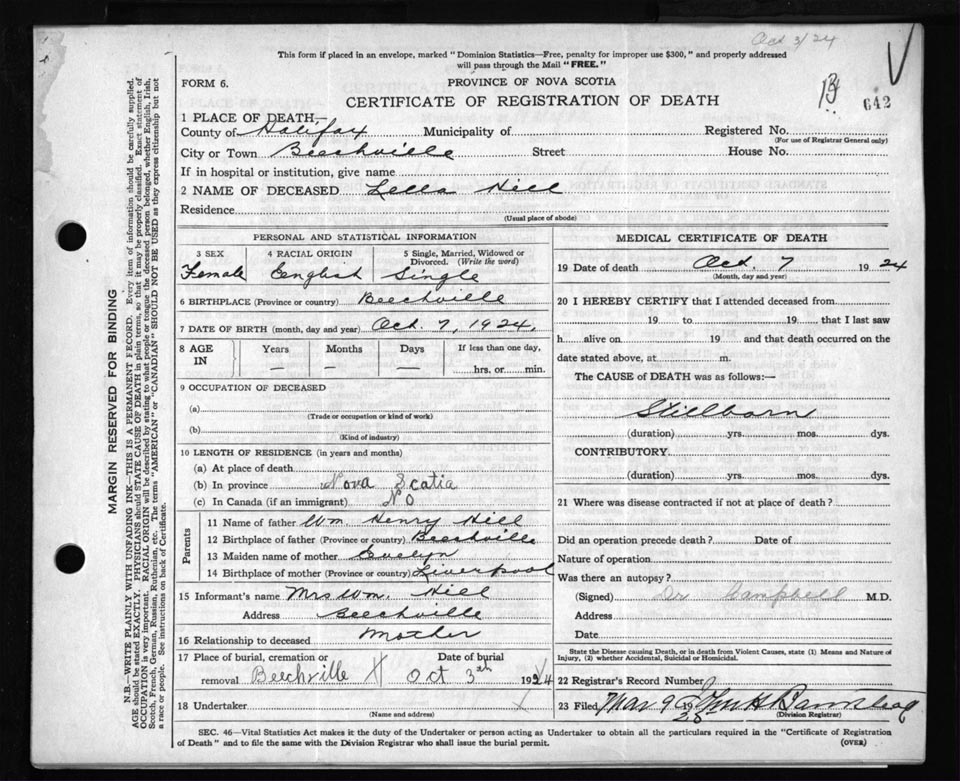 Oct 3/24
This form if placed in an envelope, marked "Dominion Statistics—Free, penalty for improper use $300," and properly addressed
will pass through the Mail "FREE."
FORM 6.
PROVINCE OF NOVA SCOTIA
CERTIFICATE OF REGISTRATION OF DEATH
642
1 PLACE OF DEATH,—
County of Halifax Municipality of Registered No.
(For use of Registrar General only)
City or Town Beechville Street House No.
If in hospital or institution, give name
2 NAME OF DECEASED Lella Hill
Residence
(Usual place of abode)
PERSONAL AND STATISTICAL INFORMATION
3 SEX 4 RACIAL ORIGIN 5 Single, Married, Widowed or
Divorced. (Write the word)
Female English Single
6 BIRTHPLACE (Province or country) Beechville
7 DATE OF BIRTH (month, day and year) Oct. 7, 1924.
8 AGE IN Years Months Days If less than one day,
— — — hrs. or min.
9 OCCUPATION OF DECEASED
(a)
(Trade or occupation or kind of work)
(b)
(Kind of industry)
10 LENGTH OF RESIDENCE (in years and months)
(a) At place of death
(b) In province Nova Scatia
(c) In Canada (if an immigrant) NO
Parents
11 Name of father Wm Henry Hill
12 Birthplace of father (Province or country) Beechville
13 Maiden name of mother Evelyn
14 Birthplace of mother (Province or country) Liverpool
15 Informant's name Mrs Wm. Hill
Address Beechville
16 Relationship to deceased Mother
17 Place of burial, cremation or Date of burial
removal Beechville X Oct 3th 1924
18 Undertaker
(Name and address)
MEDICAL CERTIFICATE OF DEATH
19 Date of death Oct. 7 1924
(Month, day and year)
20 I HEREBY CERTIFY that I attended deceased from
19 to 19 that I last saw
h alive on 19 and that death occurred on the
date stated above, at m.
The CAUSE of DEATH was as follows:—
Stillborn
(duration) yrs. mos. dys.
CONTRIBUTORY
(duration) yrs. mos. dys.
21 Where was disease contracted if not at place of death?
Did an operation precede death? Date of
Nature of operation
Was there an autopsy?
(Signed) Dr Campbell M.D.
Address
Date
State the Disease causing Death, or in death from Violent Causes, state (1) Means and Nature of
Injury, (2) whether Accidental, Suicidal or Homicidal.
22 Registrar's Record Number
23 Filed Mar 9 1925
(Division Registrar)
SEC. 46—Vital Statistics Act makes it the duty of the Undertaker or person acting as Undertaker to obtain all the particulars required in the "Certificate of Registration
of Death" and to file the same with the Division Registrar who shall issue the burial permit.
(OVER)
MARGIN RESERVED FOR BINDING
N.B.—WRITE PLAINLY WITH UNFADING INK—THIS IS A PERMANENT RECORD. Every item of information should be carefully supplied.
AGE should be stated EXACTLY. PHYSICIANS should STATE CAUSE OF DEATH in plain terms, so that it may be properly classified. Exact statement of
OCCUPATION is very important. RACIAL ORIGIN will be described by stating to what people or tongue the deceased person belonged, whether English, Irish,
Scotch, French, German, Russian, Ruthenian, etc. The terms "AMERICAN" or "CANADIAN" SHOULD NOT BE USED as they express citizenship but not
a race or people. See instructions on back of Certificate.